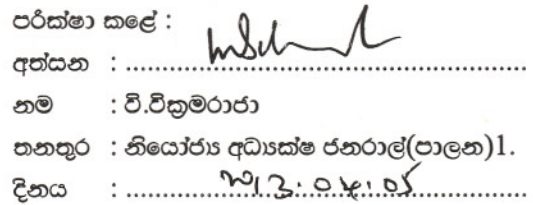 පරීක්ෂා කළේ :
අත්සන : ............................................................
නම : වි.වික්‍රමරාජා
තනතුර : නියෝජ්‍ය අධ්‍යක්ෂ ජනරාල්(පාලන)1.
දිනය : ............................................................